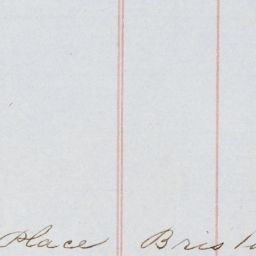 Place Bris